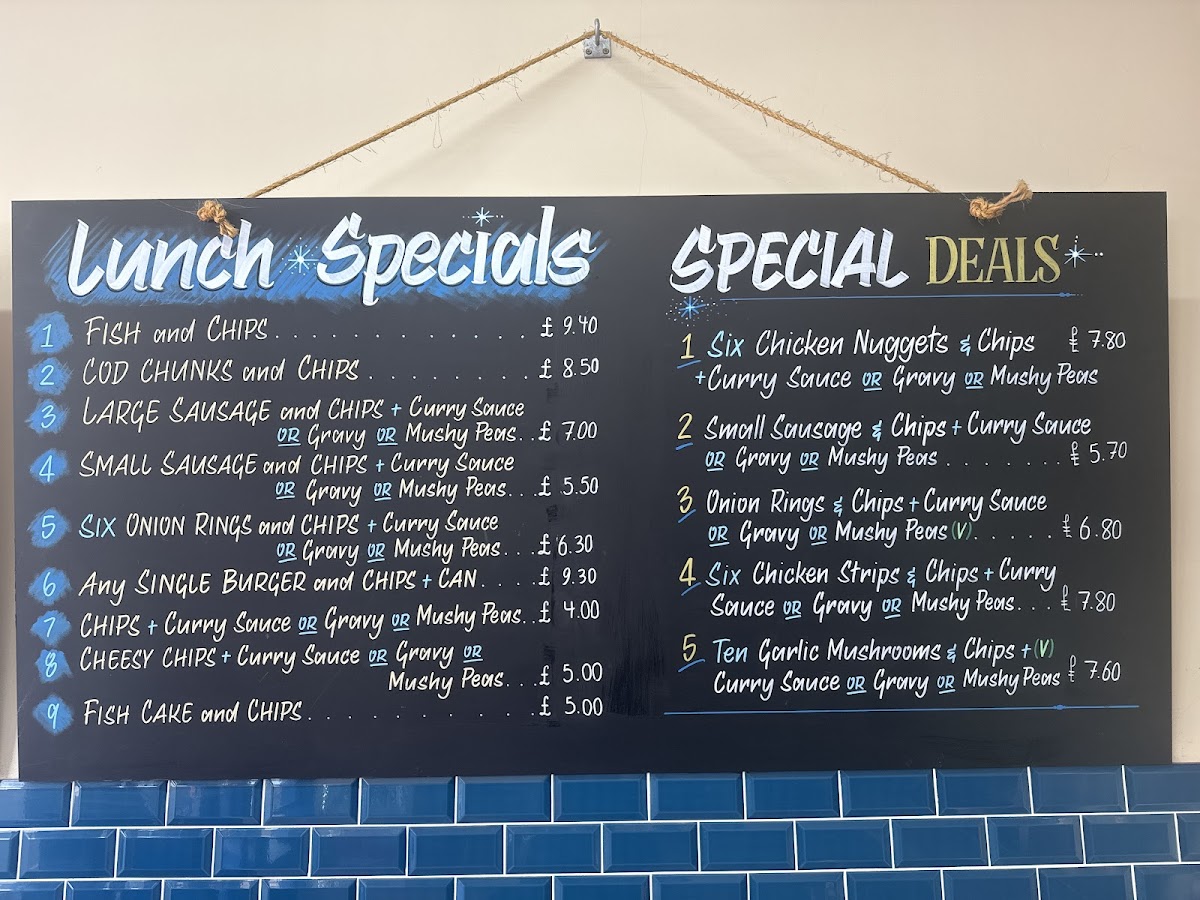 Lunch Specials
1 FISH and CHIPS . . . . . . . . . . . . . . £ 9.40
2 COD CHUNKS and CHIPS . . . . . . . . . £ 8.50
3 LARGE SAUSAGE and CHIPS + Curry Sauce
OR Gravy OR Mushy Peas. . £ 7.00
4 SMALL SAUSAGE and CHIPS + Curry Sauce
OR Gravy OR Mushy Peas. . . £ 5.50
5 SIX ONION RINGS and CHIPS + Curry Sauce
OR Gravy OR Mushy Peas. . . £ 6.30
6 Any SINGLE BURGER and CHIPS + CAN. . . . £ 9.30
7 CHIPS + Curry Sauce OR Gravy OR Mushy Peas. . £ 4.00
8 CHEESY CHIPS + Curry Sauce OR Gravy OR
Mushy Peas. . . £ 5.00
9 FISH CAKE and CHIPS . . . . . . . . . . . . £ 5.00
SPECIAL DEALS
1 Six Chicken Nuggets & Chips £ 7.80
+ Curry Sauce OR Gravy OR Mushy Peas
2 Small Sausage & Chips + Curry Sauce
OR Gravy OR Mushy Peas . . . . . . . £ 5.70
3 Onion Rings & Chips + Curry Sauce
OR Gravy OR Mushy Peas (V) . . . . . £ 6.80
4 Six Chicken Strips & Chips + Curry
Sauce OR Gravy OR Mushy Peas. . . £ 7.80
5 Ten Garlic Mushrooms & Chips + (V)
Curry Sauce OR Gravy OR Mushy Peas £ 7.60